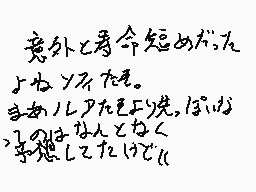 意外と寿命短めだった
よねソフィたそ。
まあノレアたそより先っぽいな
ってのはなんとなく
予想してたけど((